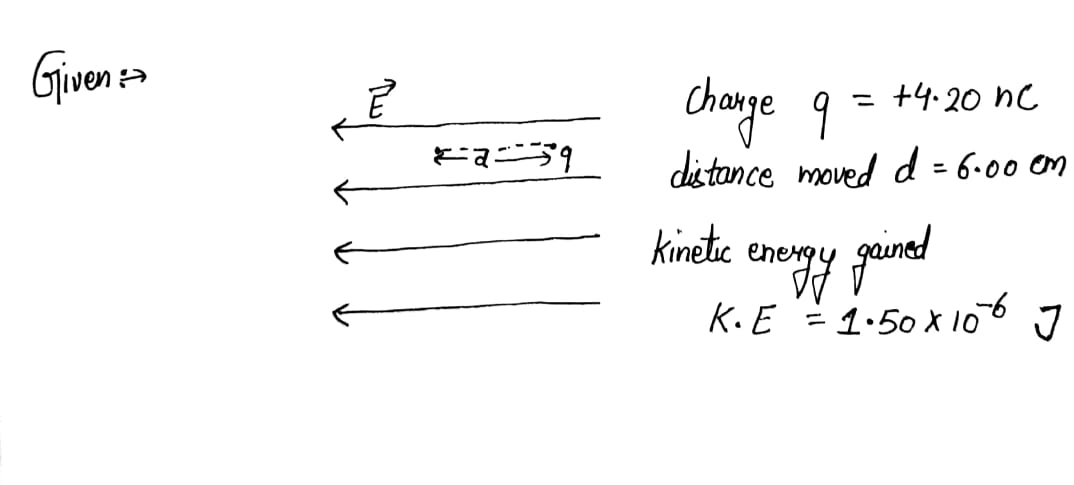 Given :→
E
Charge q = +4.20 nC
d q
distance moved d = 6.00 cm
kinetic energy gained
K.E = 1.50 x 10⁻⁶ J